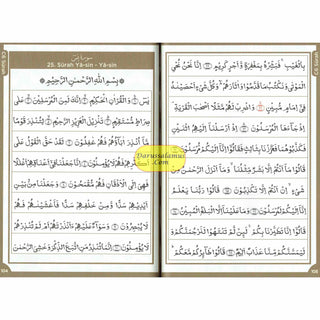 سورة يس
25. Sūrah Yā-sin - Yâ-sin
بِسْمِ اللهِ الرَّحْمٰنِ الرَّحِيْمِ
يٰسٓ وَالْقُرْاٰنِ الْحَكِيْمِ اِنَّكَ لَمِنَ الْمُرْسَلِيْنَ عَلٰى
صِرَاطٍ مُّسْتَقِيْمٍ تَنْزِيْلَ الْعَزِيْزِ الرَّحِيْمِ لِتُنْذِرَ قَوْمًا
مَّآ اُنْذِرَ اٰبَآؤُهُمْ فَهُمْ غٰفِلُوْنَ لَقَدْ حَقَّ الْقَوْلُ عَلٰٓى
اَكْثَرِهِمْ فَهُمْ لَا يُؤْمِنُوْنَ اِنَّا جَعَلْنَا فِيْٓ اَعْنَاقِهِمْ اَغْلٰلًا
فَهِيَ اِلَى الْاَذْقَانِ فَهُمْ مُّقْمَحُوْنَ وَجَعَلْنَا مِنْۢ بَيْنِ
اَيْدِيْهِمْ سَدًّا وَّمِنْ خَلْفِهِمْ سَدًّا فَاَغْشَيْنٰهُمْ فَهُمْ
لَا يُبْصِرُوْنَ وَسَوَآءٌ عَلَيْهِمْ ءَاَنْذَرْتَهُمْ اَمْ لَمْ تُنْذِرْهُمْ
لَا يُؤْمِنُوْنَ اِنَّمَا تُنْذِرُ مَنِ اتَّبَعَ الذِّكْرَ وَخَشِيَ الرَّحْمٰنَ
104
بِالْغَيْبِ فَبَشِّرْهُ بِمَغْفِرَةٍ وَّاَجْرٍ كَرِيْمٍ اِنَّا نَحْنُ نُحْيِ
الْمَوْتٰى وَنَكْتُبُ مَا قَدَّمُوْا وَاٰثَارَهُمْ وَكُلَّ شَيْءٍ اَحْصَيْنٰهُ
فِيْٓ اِمَامٍ مُّبِيْنٍ وَاضْرِبْ لَهُمْ مَّثَلًا اَصْحٰبَ الْقَرْيَةِ
اِذْ جَآءَهَا الْمُرْسَلُوْنَ اِذْ اَرْسَلْنَآ اِلَيْهِمُ اثْنَيْنِ
فَكَذَّبُوْهُمَا فَعَزَّزْنَا بِثَالِثٍ فَقَالُوْٓا اِنَّآ اِلَيْكُمْ مُّرْسَلُوْنَ
قَالُوْا مَآ اَنْتُمْ اِلَّا بَشَرٌ مِّثْلُنَا وَمَآ اَنْزَلَ الرَّحْمٰنُ مِنْ
شَيْءٍ اِنْ اَنْتُمْ اِلَّا تَكْذِبُوْنَ قَالُوْا رَبُّنَا يَعْلَمُ
اِنَّآ اِلَيْكُمْ لَمُرْسَلُوْنَ وَمَا عَلَيْنَآ اِلَّا الْبَلٰغُ الْمُبِيْنُ
قَالُوْٓا اِنَّا تَطَيَّرْنَا بِكُمْ لَئِنْ لَّمْ تَنْتَهُوْا لَنَرْجُمَنَّكُمْ
وَلَيَمَسَّنَّكُمْ مِّنَّا عَذَابٌ اَلِيْمٌ قَالُوْا طَآئِرُكُمْ مَّعَكُمْ
Darussalamus
.Com